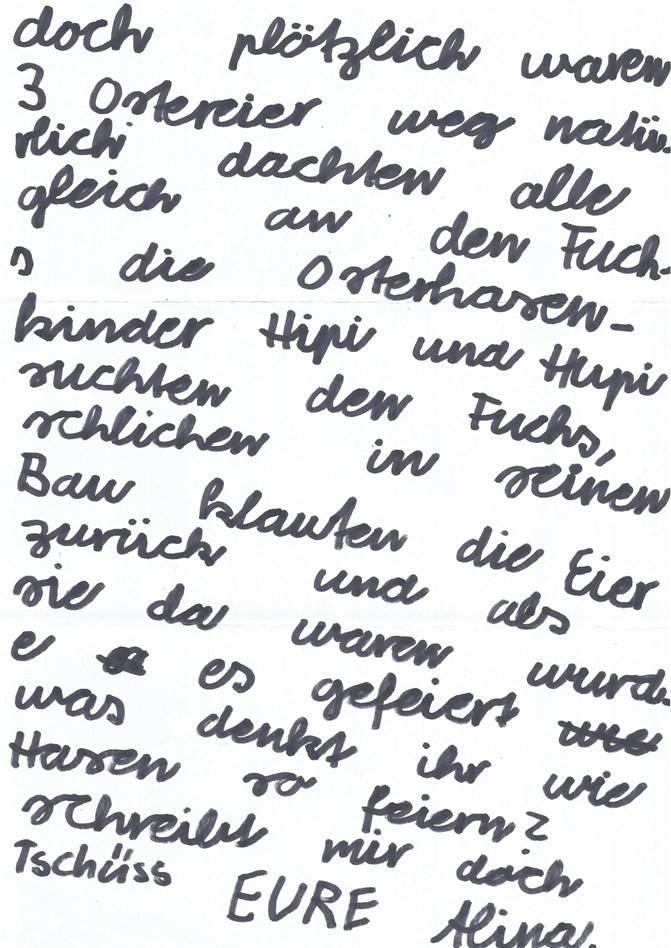 doch plötzlich waren
3 Ostereier weg natü-
rlich dachten alle
gleich an den Fuch-
s die Osterhasen-
kinder Hipi und Hupi
suchten den Fuchs,
schlichen in seinen
Bau klauten die Eier
zurück und als
sie da waren wurd-
e es gefeiert
was denkt ihr wie
Hasen so feiern?
schreibt mir doch
Tschüss EURE Alina